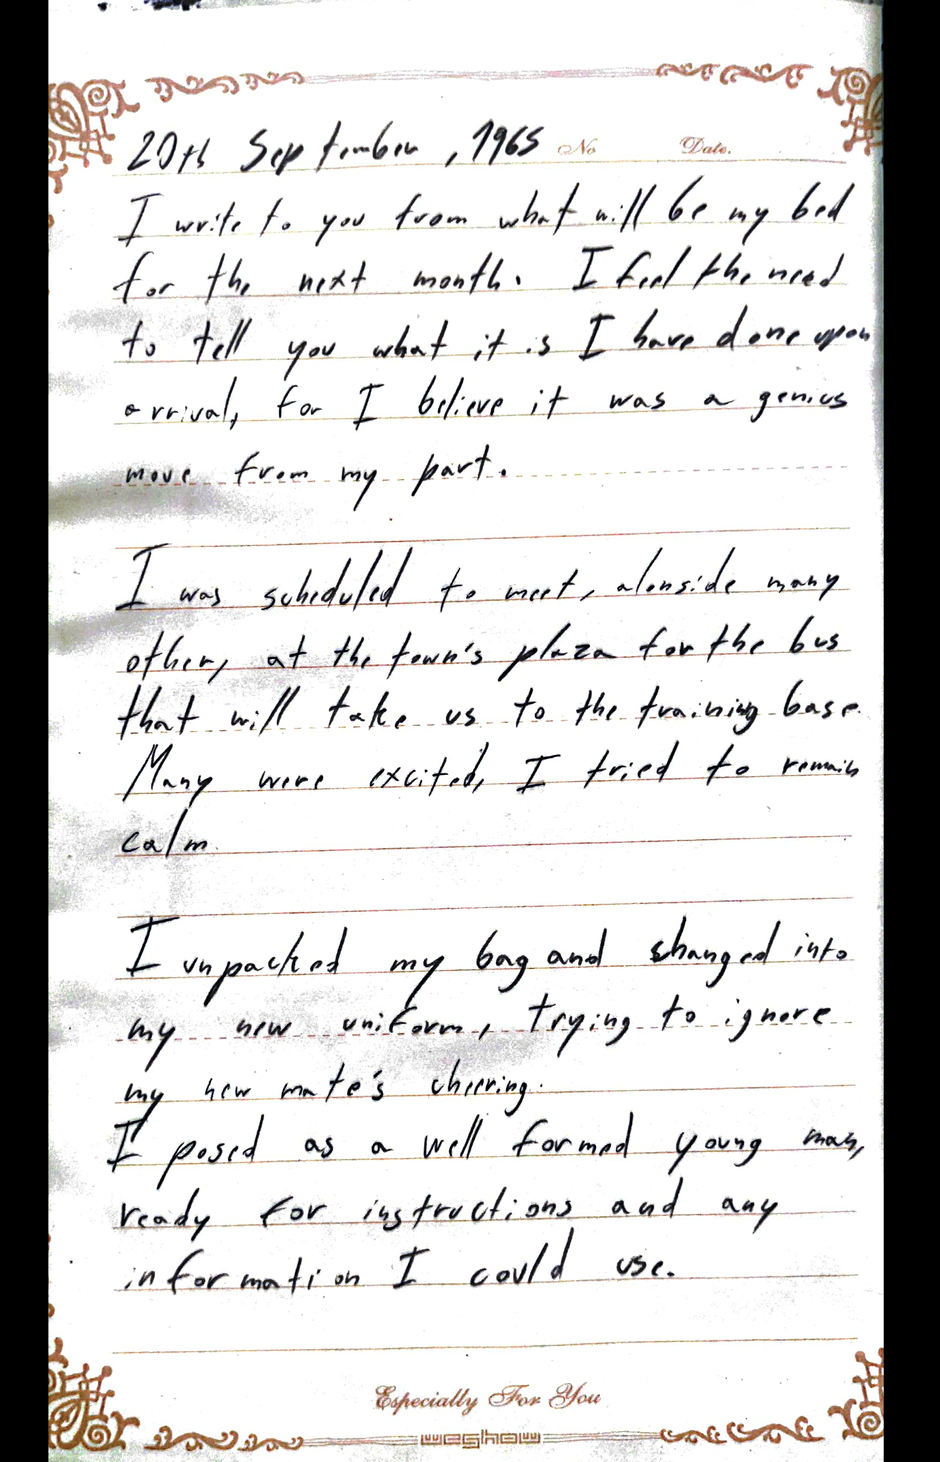 20th September, 1965 No Date.
I write to you from what will be my bed
for the next month. I feel the need
to tell you what it is I have done upon
arrival, for I believe it was a genius
move from my part.
I was scheduled to meet, alonside many
other, at the town's plaza for the bus
that will take us to the training base.
Many were excited, I tried to remain
calm.
I unpacked my bag and changed into
my new uniform, trying to ignore
my new mate's cheering.
I posed as a well formed young man,
ready for instructions and any
information I could use.
Especially For You
weshow